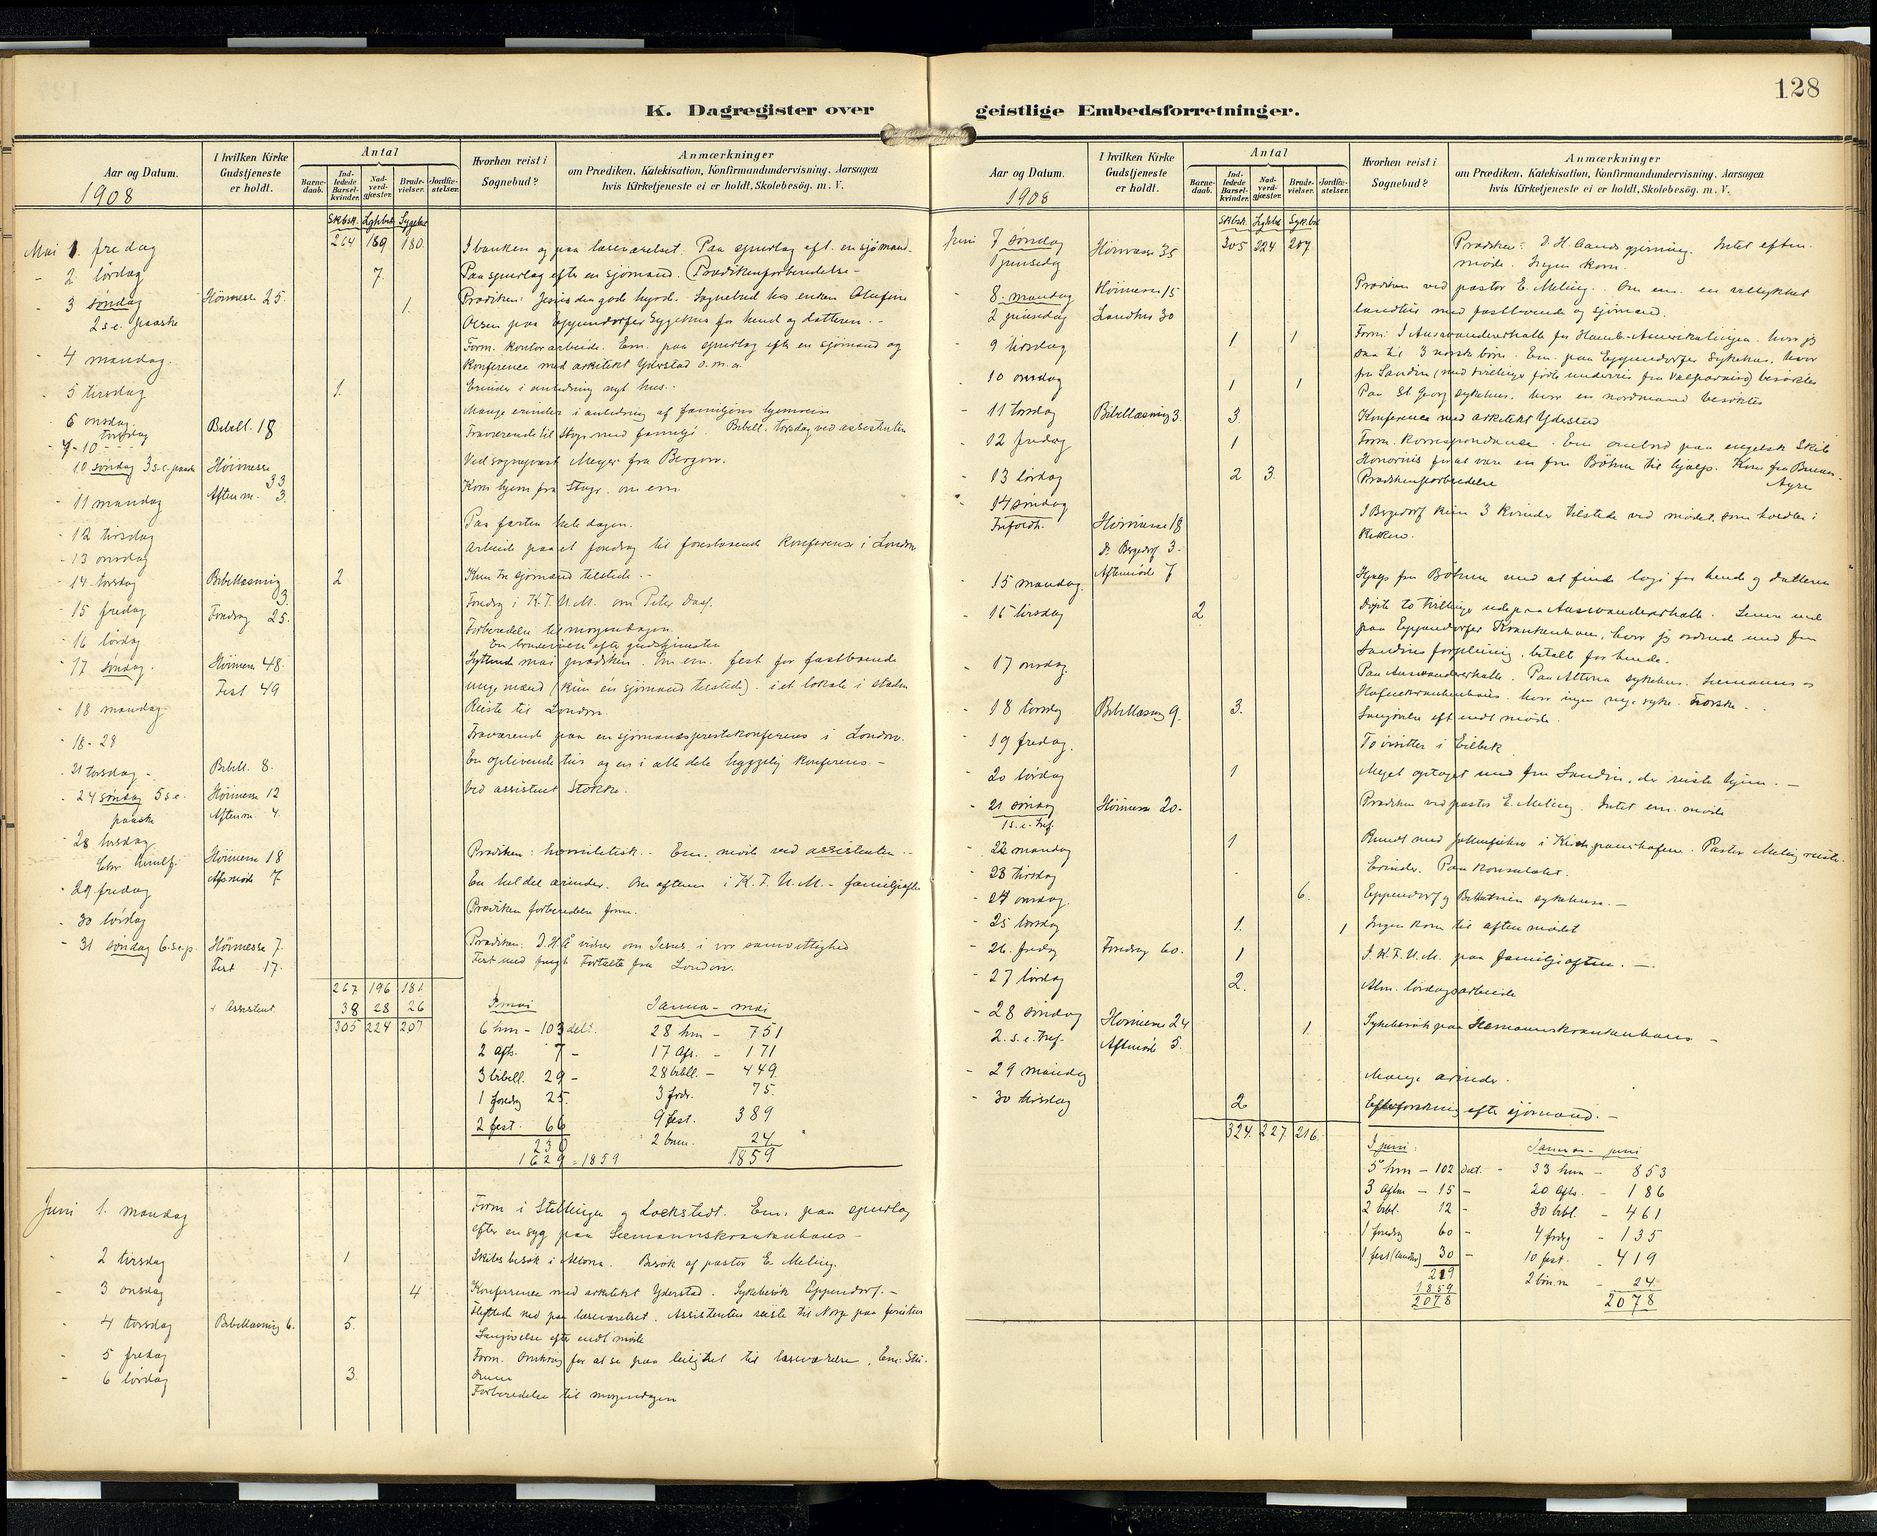 128
K. Dagregister over geistlige Embedsforretninger.
Aar og Datum.
I hvilken Kirke Gudstjeneste er holdt.
Antal
Barnedaab.
Indledede Barselkvinder.
Nadverdgjæster.
Brudevielser.
Jordfæstelser.
Hvorhen reist i Sognebud?
Anmærkninger
om Prædiken, Katekisation, Konfirmandundervisning, Aarsagen
hvis Kirketjeneste ei er holdt, Skolebesög. m. V.
1908
Skbsk. Lghbsk Sygebsk
Mai 1. fredag 264 189 180. I banken og paa læseværelset. Paa spurlag eft. en sjømand.
2 lørdag 7. Paa spurlag efter en sjømand. (Prædikenforberedelse -
3 søndag Høimesse 25. 1. Prædiken: Jesus den gode hyrde. Sognebud hos enken Olufine
2 s. e. paaske Olsen paa Eppendorfer Sygehus for hend og datteren. -
4 mandag. Form. kontorarbeide. Em. paa spurlag efter en sjømand og
konference med arkitekt Yderstad o. m. a.
5 tirsdag 1. Erinder i anledning nyt hus. -
6 onsdag Mange erinder i anledning af familjens hjemreise
7-10 torsdag Bibell. 18 Fraværende til Stege med familje Bibell. torsdag ved assistenten
10 søndag 3 s. e. paaske Høimesse 33 Ved sogneprest Meyer fra Bergen.
Aftenm. 3.
11 mandag Kom hjem fra Stege. om em.
12 tirsdag Paa farten hele dagen.
13 onsdag Arbeide paa et foredrag til forestaaende konference i London
14 torsdag Bibellæsning 3. 2 Kun tre sjømænd tilstede. -
15 fredag Foredrag 25. Foredrag i K.F.U.M. om Peter Dass.
16 lørdag Forberedelse til morgendagen.
En brudevielse efter gudstjenesten
17 søndag. Høimesse 48. Syttende mai prædiken. Om em. fest for fastboende
Fest 49 unge mænd (kun én sjømand tilstede). i et lokale i staden
18 mandag Reiste til London.
18-28 Fraværende paa en sjømansprestekonferens i London.
21 torsdag - Bibell. 8. En oplivende tur og en i alle dele hyggelig konferens -
24 søndag 5 s. e. paaske Høimesse 12 Ved assistent Stokke.
Aftenm. 4.
28 torsdag
Chr. himlf. Høimesse 18 Prædiken: homiletisk. - Em. møde ved assistenten -
Aftmøde 7
29 fredag En hel del ærinder. Om aftenen i K.F.U.M. - familjeaften
30 lørdag Prædiken forberedelse form.
31 søndag 6. s. e. p. Høimesse 7. Prædiken: D.H.Å vidner om Jesus i vor samvittighed
Fest 17. Fest med frugt. Fortalte fra London.
267 196 181
+ Assistent. 38 28 26
305 224 207
I mai
6 hm - 103 delt.
2 aft. 7 -
3 bibell. 29 -
1 foredrag 25.
2 fest. 66
230
1629 = 1859
Januar - mai
28 hm - 751
17 Aft. - 171
28 bibell. - 449.
3 fordr. 75.
9 fest. 389
2 bønm. 24
1859
Juni 1. mandag Form i Stellingen og Lockstedt. Em. paa spurlag
efter en syg paa Seemannskrankenhaus -
2 tirsdag 1 Skibsbesøk i Altona. Besøk af pastor E. Meling.
3 onsdag 4 Konference med arkitekt Yderstad. Sykebesøk Eppendorf. -
4 torsdag Bibellæsning 6. 5. Flyttede ned paa læseværelset. Assistenten reiste til Norge paa ferietur
Sangøvelse efter endt møde
5 fredag Form. Omkring for at se paa leilighet til læseværelse. Em. Studium
6 lørdag 3. Forberedelse til morgendagen
1908
Skbsk. Lghbsk Sykbsk
Juni 7 søndag Høimesse 35 305 224 207 Prædiken: D. H. Aands gjerning. Intet eftm.
1 pinsedag møde. Ingen kom.
8. mandag Høimesse 15 Prædiken ved pastor E. Meling. Om em. en vellykket
2 pinsedag Landtur 30 landtur med fastboende og sjømænd.
9 tirsdag 1 1 Form. I Auswandererhalle for Hamb.-Amerikalinjen. hvor jeg
saa til 3 norske børn. Em. paa Eppendorfer Sykehus, hvor
10 onsdag 1 1 fru Sandin (med tvillinger født underveis fra Valparaiso) besøktes
Paa St. Georg sykehus. hvor en nordmand besøktes
11 torsdag Bibellæsning 3. 3 Konference med arkitekt Yderstad
12 fredag 1 Form. korrespondanse. Em. ombord paa engelsk Skib
Honorius for at være en fru Böhm til hjælp. Kom fra Buenos Ayre
13 lørdag 2 3. Prædikenforberedelse
14 søndag
Trefoldh. Høimesse 18 I Bergedorf kun 3 kvinder tilstede ved mødet, som holdtes i
Do Bergedorf 3. kirken.
Aftenmøde 7
15 mandag. Hjalp fru Böhm med at finde logi for hende og datteren
16 tirsdag 2 Døpte to tvillinger ude paa Auswandererhalle. Senere ude
paa Eppendorfer Krankenhaus, hvor jeg ordnede med fru
Sandins forpleining, betalt for hende.
17 onsdag Paa Auswandererhalle. Paa Altona sykehus. Seemanns og
Hafenkrankenhaus. hvor ingen nye syke. Norske -
18 torsdag Bibellæsning 9. 3. Sangøvelse eft endt møde.
19 fredag. To visitter i Eilbek
20 lørdag 1 Meget optaget med fru Sandin, der reiste hjem. -
21 søndag Høimesse 20. Prædiken ved pastor E. Meling. Intet em. møde
1 s. e. tref.
22 mandag 1 Rundt med i Pastor Meling reiste.
23 tirsdag Erinder. Paa konsulatet.
24 onsdag. 6. Eppendorf og Bethanien sykehuse. -
25 torsdag 1. 1 Ingen kom til aftenmødet
26. fredag Foredrag 60. 1 I K.F.U.M. paa familjeaften. -
27 lørdag 2. Alm. lørdagsarbeide
28 søndag Høimesse 24 1. Sykebesøk paa Seemannskrankenhaus -
2. s. e. tref. Aftmøde 5.
29 mandag Mange ærinder.
30 tirsdag 2 Efterforskning efter sjømænd. -
324. 227. 216.
I juni:
5 hm - 102 delt.
3 Aftm - 15 -
2 bibl. 12 -
1 foredrag 60 -
1 fest (landtur) 30 -
219
1859
2078
Januar - juni
33 hm - 853
20 Aft. - 186
30 bibl. - 461
4 fordrg - 135
10 fest. - 419
2 bøn.m - 24
2078